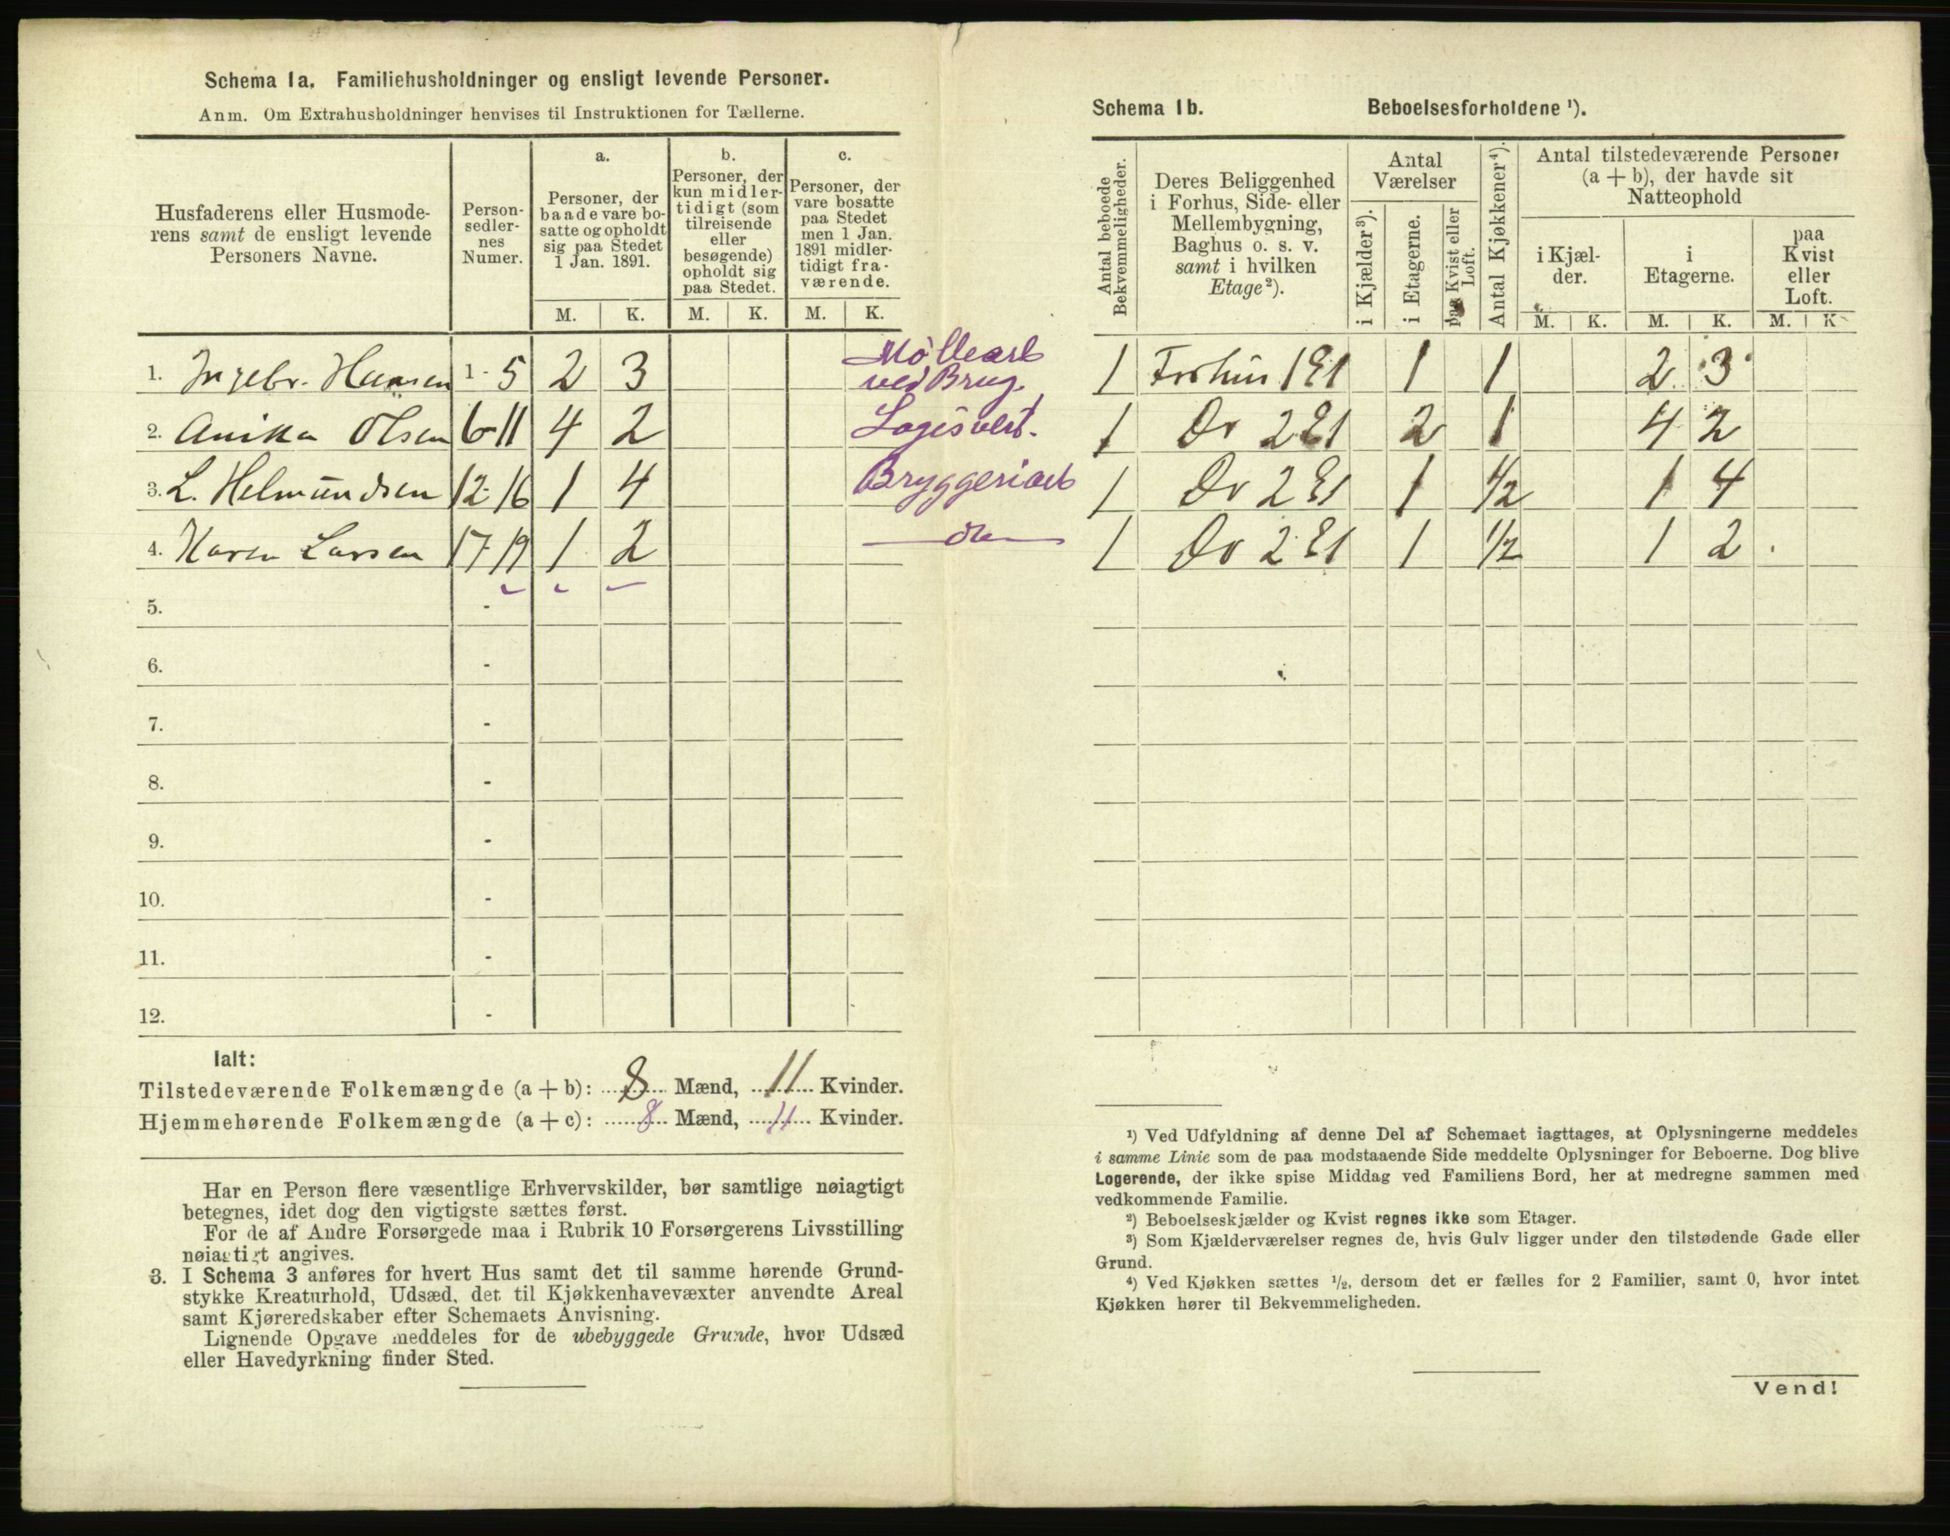 Schema 1a. Familiehusholdninger og ensligt levende Personer.
Anm. Om Extrahusholdninger henvises til Instruktionen for Tællerne.
Husfaderens eller Husmoderens samt de ensligt levende Personers Navne.
Personsedlernes Numer.
a.
Personer, der baade vare bosatte og opholdt sig paa Stedet 1 Jan. 1891.
b.
Personer, der kun midlertidigt (som tilreisende eller besøgende) opholdt sig paa Stedet.
c.
Personer, der vare bosatte paa Stedet men 1 Jan. 1891 midlertidigt fraværende.
M. K. M. K. M. K.
1. Ingebr. Hansen 1-5 2 3 Møllearb ved Brug.
2. Anika Olsen 6-11 4 2 Logisvert.
3. L. Helmundsen 12-16 1 4 Bryggeriarb
4. Karen Larsen 17-19 1 2
5. -
6. -
7. -
8. -
9. -
10. -
11. -
12. -
Ialt:
Tilstedeværende Folkemængde (a + b): 8 Mænd, 11 Kvinder.
Hjemmehørende Folkemængde (a + c): 8 Mænd, 11 Kvinder.
Har en Person flere væsentlige Erhvervskilder, bør samtlige nøiagtigt
betegnes, idet dog den vigtigste sættes først.
For de af Andre Forsørgede maa i Rubrik 10 Forsørgerens Livsstilling
nøiagtigt angives.
3. I Schema 3 anføres for hvert Hus samt det til samme hørende Grund-
stykke Kreaturhold, Udsæd, det til Kjøkkenhavevæxter anvendte Areal
samt Kjøreredskaber efter Schemaets Anvisning.
Lignende Opgave meddeles for de ubebyggede Grunde, hvor Udsæd
eller Havedyrkning finder Sted.
Schema 1b. Beboelsesforholdene ¹).
Antal beboede Bekvemmeligheder.
Deres Beliggenhed i Forhus, Side- eller Mellembygning, Baghus o. s. v. samt i hvilken Etage²).
Antal Værelser
i Kjælder³).
i Etagerne.
paa Kvist eller Loft.
Antal Kjøkkener⁴).
Antal tilstedeværende Personer (a + b), der havde sit Natteophold
i Kjælder.
i Etagerne.
paa Kvist eller Loft.
M. K. M. K. M. K
1 Forhus 1 Et 1 1 2 3
1 Do 2 Et 2 1 4 2
1 Do 2 Et 1 1/2 1 4
1 Do 2 Et 1 1/2 1 2
¹) Ved Udfyldning af denne Del af Schemaet iagttages, at Oplysningerne meddeles
i samme Linie som de paa modstaaende Side meddelte Oplysninger for Beboerne. Dog blive
Logerende, der ikke spise Middag ved Familiens Bord, her at medregne sammen med
vedkommende Familie.
²) Beboelseskjælder og Kvist regnes ikke som Etager.
³) Som Kjælderværelser regnes de, hvis Gulv ligger under den tilstødende Gade eller
Grund.
⁴) Ved Kjøkken sættes ½, dersom det er fælles for 2 Familier, samt 0, hvor intet
Kjøkken hører til Bekvemmeligheden.
Vend!